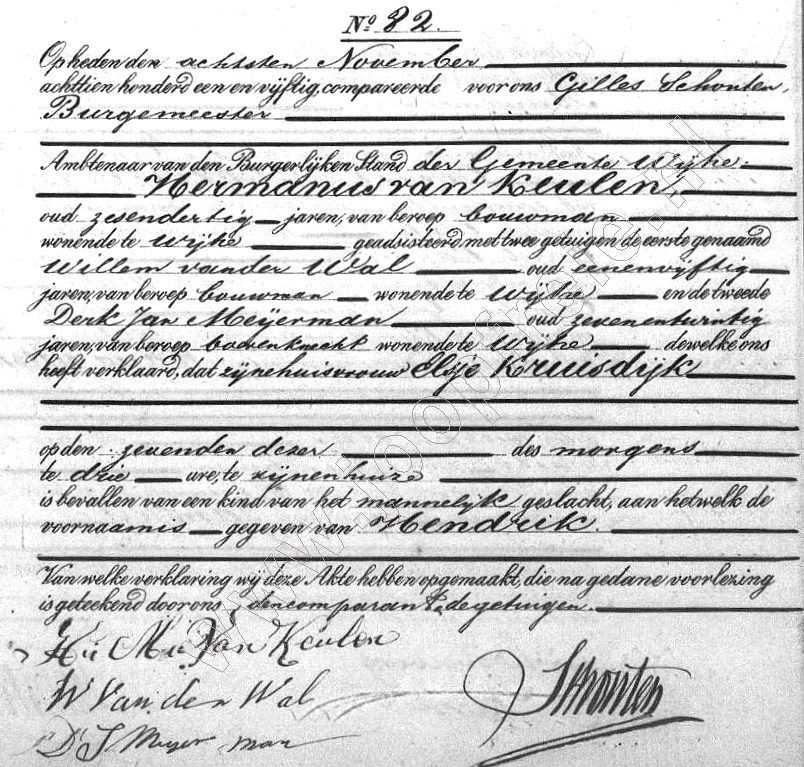 No 82.
Op heden den achtsten November
achttien honderd een en vijftig, compareerde voor ons Gilles Schouten,
Burgemeester
Ambtenaar van den Burgerlijken Stand der Gemeente Wijhe.
Hermanus van Keulen,
oud zesendertig jaren, van beroep bouwman
wonende te Wijhe geadsisteerd met twee getuigen de eerste genaamd
Willem van der Wal oud eenenvijftig
jaren, van beroep bouwman wonende te Wijhe en de tweede
Derk Jan Meijerman oud zevenentwintig
jaren, van beroep boerenknecht wonende te Wijhe dewelke ons
heeft verklaard, dat zijne huisvrouw Elsje Kruisdijk
op den zevenden dezer des morgens
te drie ure, te zijnen huize
is bevallen van een kind van het mannelijk geslacht, aan hetwelk de
voornaam is gegeven van Hendrik.
Van welke verklaring wij deze Akte hebben opgemaakt, die na gedane voorlezing
is geteekend door ons, den comparant & de getuigen.
Van Keulen
W Van den Wal
Schouten
D J Meyer man